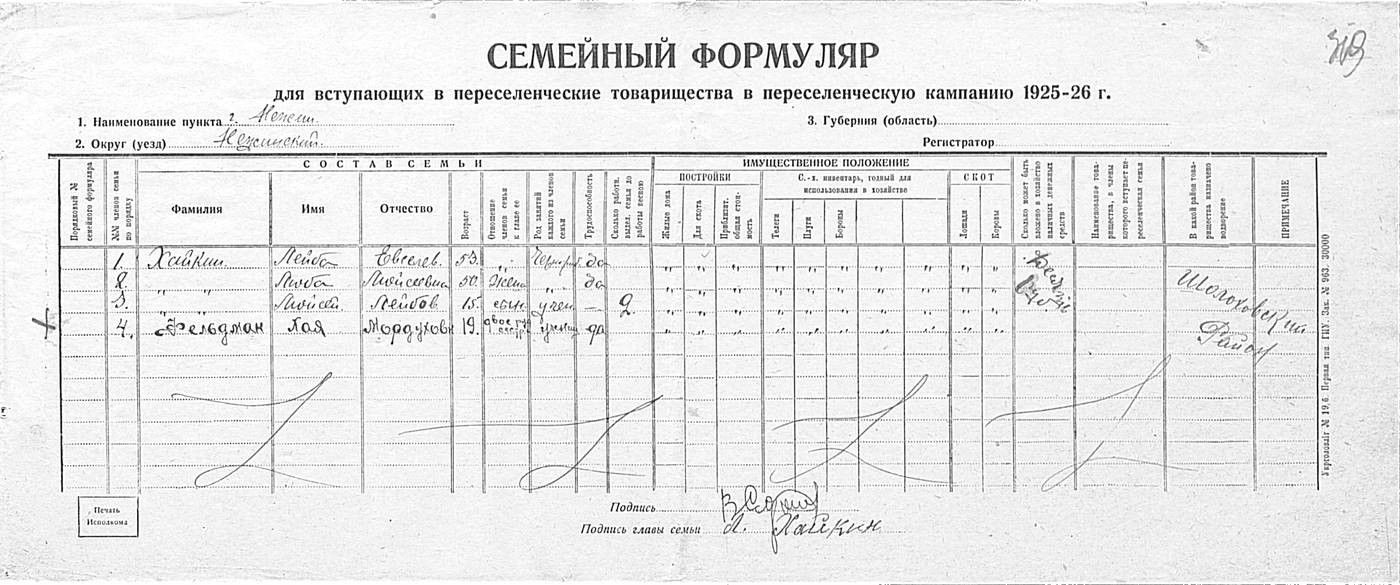 СЕМЕЙНЫЙ ФОРМУЛЯР
для вступающих в переселенческие товарищества в переселенческую кампанию 1925-26 г.
1. Наименование пункта г. Нежин.
3. Губерния (область)
2. Округ (уезд) Нежинский.
Регистратор
СОСТАВ СЕМЬИ
ИМУЩЕСТВЕННОЕ ПОЛОЖЕНИЕ
Порядковый № семейного формуляра
№№ членов семьи по порядку
Фамилия
Имя
Отчество
Возраст
Отношение членов семьи к главе ее
Род занятий каждого из членов семьи
Трудоспособность
Сколько работн. выдел. семья до работы весною
ПОСТРОЙКИ
Жилые дома
Для скота
Приблизит. общая стоимость
С.-х. инвентарь, годный для использования в хозяйстве
Телеги
Плуги
Бороны
СКОТ
Лошади
Коровы
Сколько может быть вложено в хозяйство наличных денежных средств
Наименование товарищества, в члены которого вступает переселенческая семья
В какой район товарищества назначено водворение
ПРИМЕЧАНИЕ
1. Хайкин Лейба Евсеев. 53. " да " " " " " " " "
2. " " Люба Мойсеевна 50. жена да " " " " " " " "
3. " " Мойсей Лейбов. 15. сын учен. — 2. " " " " " " " "
4. Фельдман Хая Мордухов 19. да " " " " " " " "
Шолоховский
Район
Печать
Исполкома
Подпись
Подпись главы семьи Л. Хайкин
Укрголовліт № 19,6. Первая тип. ГИУ. Зак. № 963. 30000